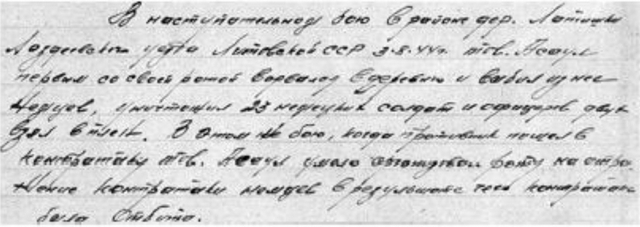 В наступательном бою в районе дер. Латишки
Лаздеевского уезда Литовской ССР 3.8.44г. тов. Асаул
первым со своей ротой ворвался в деревню и выбил из нее
немцев, уничтожил 23 немецких солдат и офицеров двух
взял в плен. В этом же бою, когда противник пошел в
контратаку тов. Асаул умело организовал роту на отра-
жение контратаки немцев в результате чего контратака
была отбита.